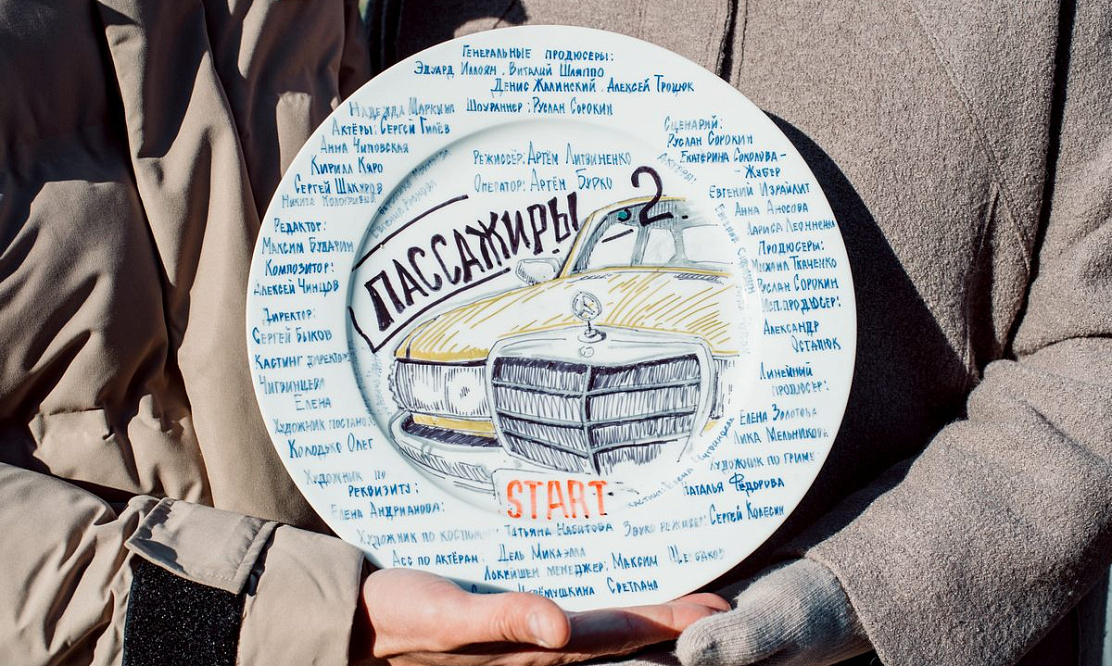 Генеральные продюсеры:
Эдуард Иллоян. Виталий Шляппо
Денис Жалинский. Алексей Троцюк
Шоураннер: Руслан Сорокин
Надежда Маркина
Актёры: Сергей Гилёв
Анна Чиповская
Кирилл Кяро
Сергей Шакуров
Никита
Редактор:
Максим Бударин
Композитор:
Алексей Чинцов
Директор:
Сергей Быков
Кастинг директор
Чигвинцева
Елена
Художник постанов
Колодько Олег
Художник по
реквизиту:
Елена Андрианова
Художник по костюмам
Татьяна Набатова
Асс по актёрам:
Дель Микаэлла
Локейшен менеджер: Максим
Черёмушкина Светлана
Режиссёр: Артём Литвиненко
Оператор: Артём Бурко
ПАССАЖИРЫ 2.
START
Сценарий:
Руслан Сорокин
Екатерина Соколова-
Жубер
Евгений Израйлит
Анна Аносова
Лариса Леоненко
Продюсеры:
Михаил Ткаченко
Руслан Сорокин
Исп.продюсер:
Александр
Остапюк
Линейный
продюсер:
Елена Золотова
Лика Мельникова
Художник по гриму
Наталья Фёдорова
Звуко режиссер: Сергей Колесин